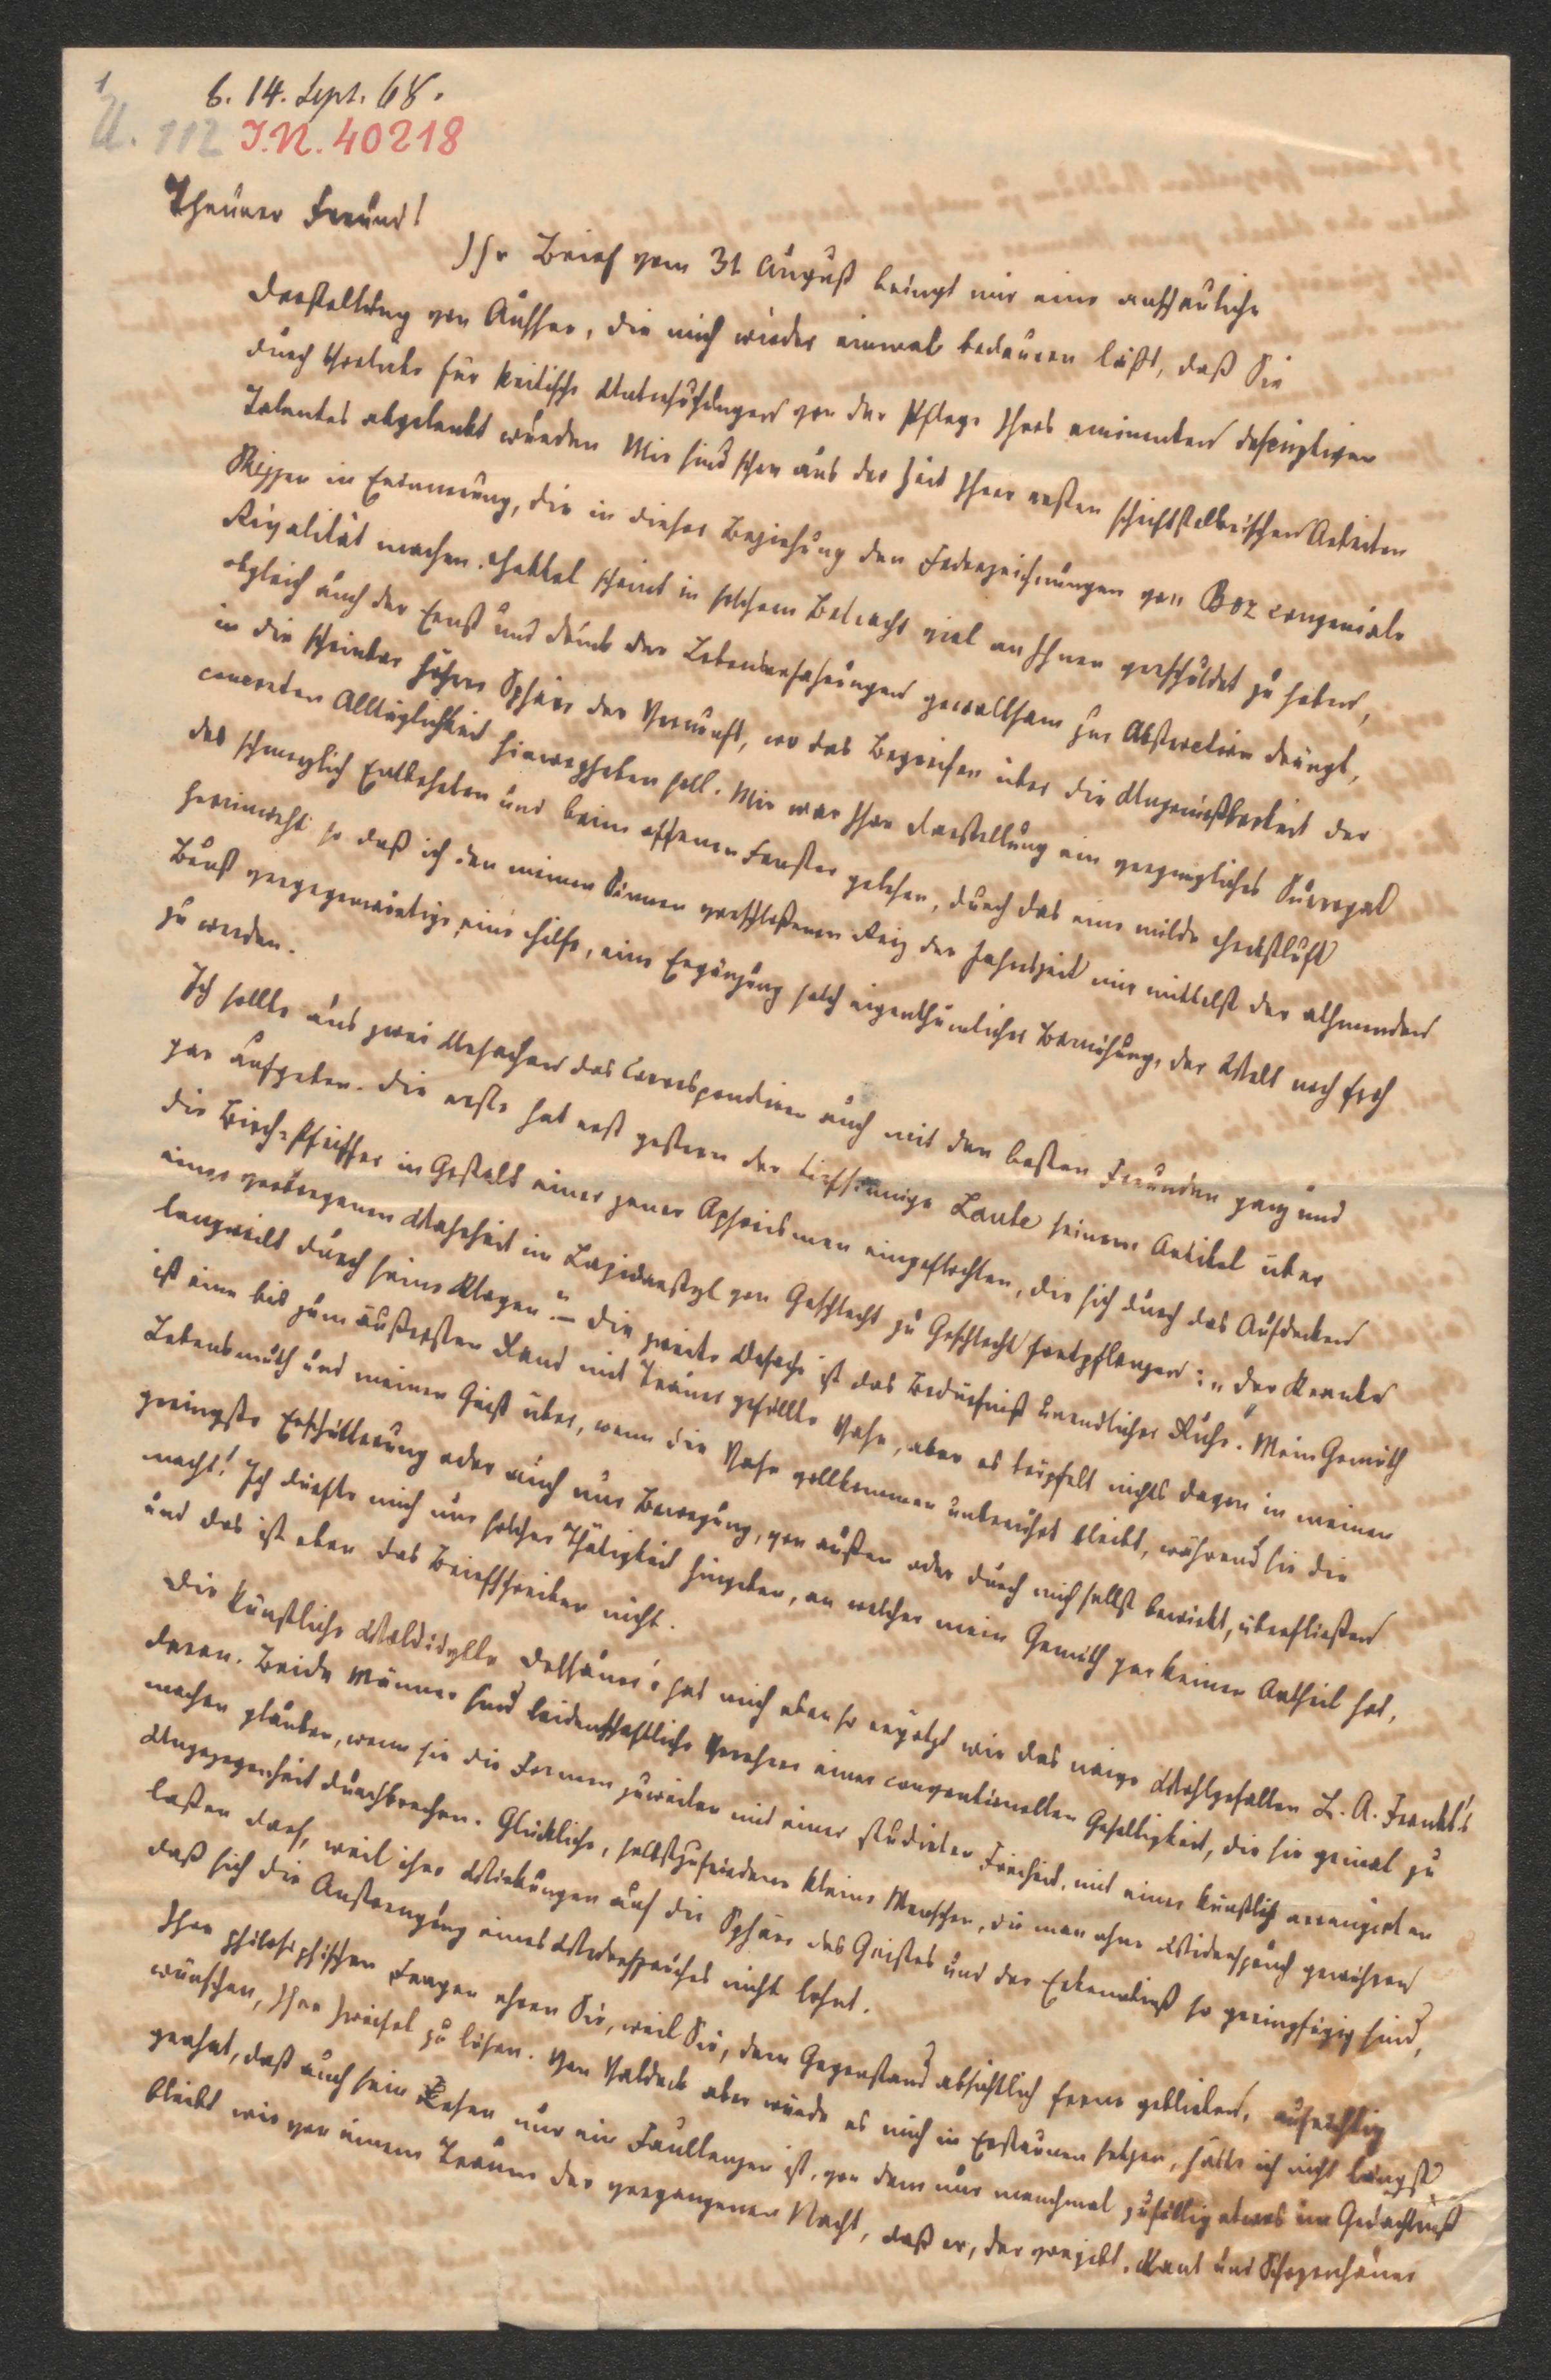 1
b. 14. Sept. 68.
U. 112 I.N. 40218
Theurer Freund!
Ihr Brief vom 31 August bringt mir eine anschauliche
Darstellung von Aussee, die mich wieder einmal bedauern läßt, daß Sie
durch Vorliebe für kritische Untersuchungen von der Pflege Ihres eminenten descriptiven
Talentes abgelenkt wurden Mir sind schon aus der Zeit Ihrer ersten schriftstellerischen Arbeiten
Skizzen in Erinnerung, die in dieser Beziehung den Federzeichnungen von Boz congeniale
Rivalität machen. Hebbel scheint in solchem Betracht viel an Ihnen verschuldet zu haben,
obgleich auch der Ernst und Druck der Lebenserfahrungen gewaltsam zur Abstraction drängt,
in die scheinbar höhere Sphäre der Vernunft, wo das Begreifen über die Ungenießbarkeit der
concreten Alltäglichkeit hinwegheben soll. Mir war Ihre Darstellung ein vergnügliches Surrogat
des schmerzlich Entbehrten und beim offenen Fenster gelesen, durch das eine milde Herbstluft
hereinweht so daß ich den meinen Sinnen verschloßenen Reiz der Jahrszeit mir mittelst der athmenden
Brust vergegenwärtige, eine Hilfe, eine Ergänzung solch eigenthümlicher Bemühung, der Welt noch froh
zu werden.
Ich sollte aus zwei Ursachen das Correspondiren auch mit den besten Freunden ganz und
gar aufgeben. Die erste hat erst gestern der tiefsinnige Laube seinem Artikel über
die Birch-Pfeiffer in Gestalt eines jener Aphorismen eingeflochten, die sich durch das Aufdecken
einer verborgenen Wahrheit im Lapidarstyl von Geschlecht zu Geschlecht fortpflanzen: „Der Kranke
langweilt durch seine Klagen." – Die zweite Ursache ist das Bedürfniß unendlicher Ruhe. Mein Gemüth
ist eine bis zum äußersten Rand mit Trauer gefüllte Vase, aber es tröpfelt nichts davon in meinen
Lebensmuth und meinen Geist über, wenn die Vase vollkommen unberührt bleibt, während sie die
geringste Erschütterung oder auch nur Bewegung, von außen oder durch mich selbst bewirkt, überfließen
macht! Ich dürfte mich nur solcher Thätigkeit hingeben, an welcher mein Gemüth gar keinen Antheil hat,
und das ist eben das Briefschreiben nicht.
Die künstliche Waldidylle Dessauer's hat mich eben so ergötzt wie das naive Wohlgefallen L. A. Frankl's
daran. Beide Männer sind leidenschaftliche Verehrer einer conventionellen Geselligkeit, die sie genial zu
machen glauben, wenn sie die Formen zuweilen mit einer studirten Freiheit, mit einer künstlich arrangirten
Ungezogenheit durchbrechen. Glückliche, selbstzufriedene kleine Menschen, die man ohne Widerspruch gewähren
laßen darf, weil ihre Wirkungen auf die Sphäre des Geistes und der Erkenntniß so geringfügig sind,
daß sich die Anstrengung eines Widerspruches nicht lohnt.
Ihre philosophischen Fragen ehren Sie, weil Sie, dem Gegenstand absichtlich ferne geblieben, aufrichtig
wünschen, Ihre Zweifel zu lösen. Von Valdeck aber würde es mich in Erstaunen setzen, hätte ich nicht längst
geahnt, daß auch sein Lesen nur ein Faullenzen ist, von dem nur manchmal zufällig etwas im Gedächtniß
bleibt wie von einem Traum der vergangenen Nacht, daß er, der vorgibt, Kant und Schopenhauer